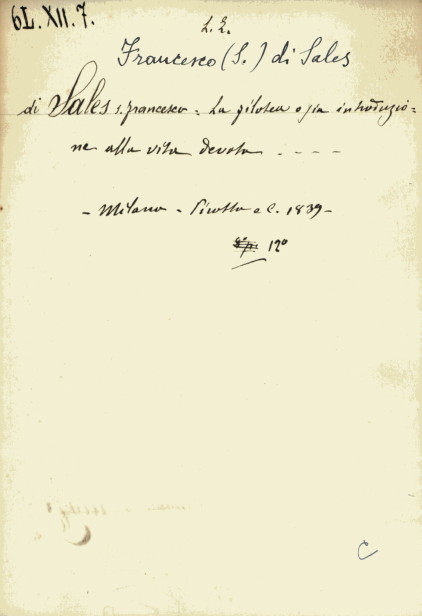 6L. XII. 7.
Francesco (S.) di Sales
di Sales S. Francesco = La filotea o sia introduzio=
ne alla vita devota - - - -
- Milano - Pirotta e C. 1839 -
12°
C